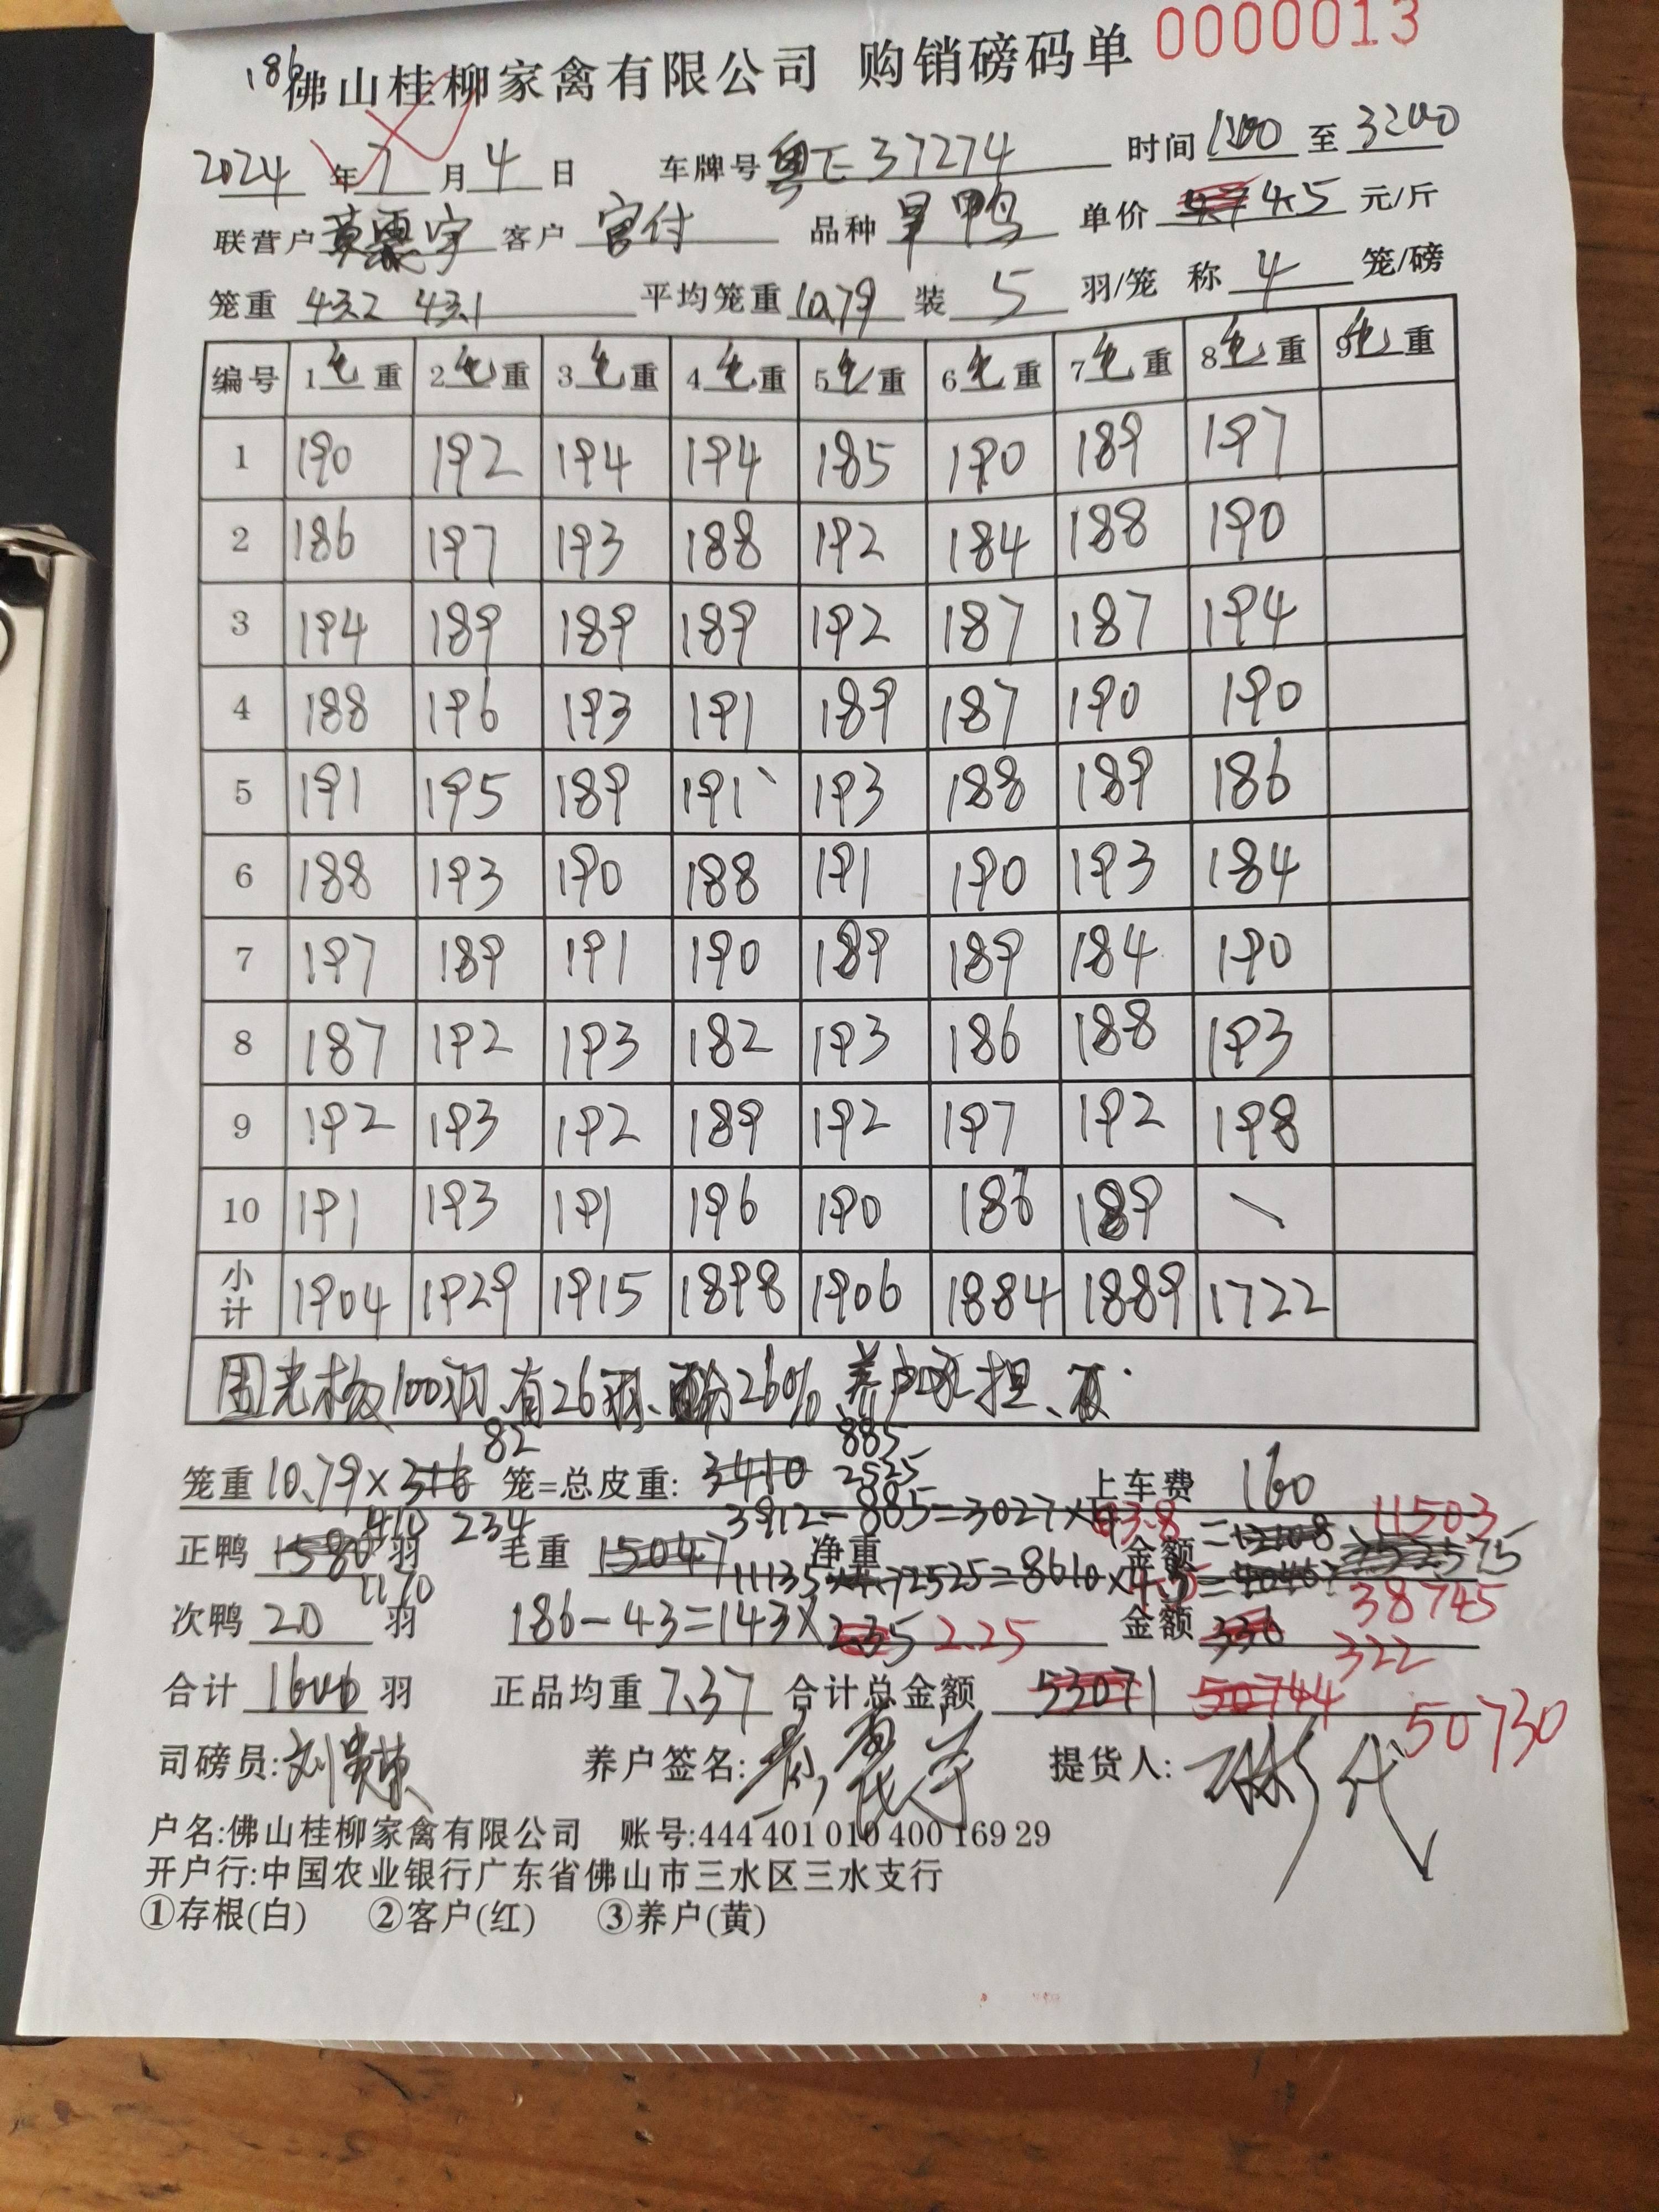 0000013
186
佛山桂柳家禽有限公司 购销磅码单
2024年7月4日 车牌号粤E37274 时间 至
联营户 客户 品种旱鸭 单价 4.5 元/斤
笼重 43.2 43.1 平均笼重10.79 装5羽/笼 称4笼/磅
编号 1毛重 2毛重 3毛重 4毛重 5毛重 6毛重 7毛重 8毛重 9毛重
1 190 192 194 194 185 190 189 197
2 186 197 193 188 192 184 188 190
3 194 189 189 189 192 187 187 194
4 188 196 193 191 189 187 190 190
5 191 195 189 191 193 188 189 186
6 188 193 190 188 191 190 193 184
7 197 189 191 190 189 189 184 190
8 187 192 193 182 193 186 188 193
9 192 193 192 189 192 197 192 198
10 191 193 191 196 190 186 189 \
小计 1904 1929 1915 1898 1906 1884 1889 1722
100羽、有26羽、 26% 养户承担、
82 885
笼重10.79×316笼=总皮重:3410 2525 上车费 160
410 234 3912-885=3027× 3.8 = 11503
正鸭1580羽 毛重15047 净重 金额
1170 11135 2525=8610× 4.5 = 38745
次鸭20羽 186-43=143× 2.25 金额 336 322
合计1600羽 正品均重7.37 合计总金额 53071 50744 50730
司磅员: 养户签名: 提货人:
户名:佛山桂柳家禽有限公司 账号:444 401 010 400 169 29
开户行:中国农业银行广东省佛山市三水区三水支行
①存根(白) ②客户(红) ③养户(黄)